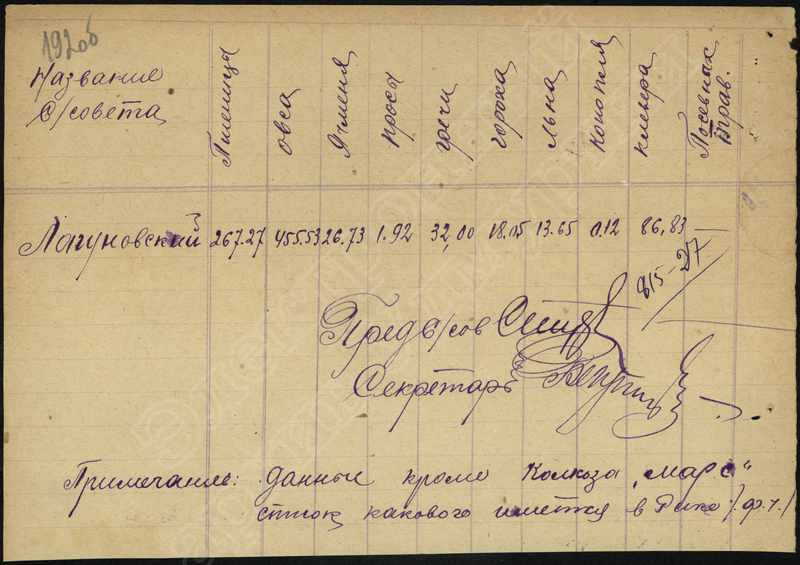 Название
С/совета
Пшеницы
овса
Ячменя
просы
гречи
гороха
льна
Конопля
клевера
Посевных
трав.
Лагуновский 267.27 455.53 26.73 1.92 32,00 18.05 13.65 0.12 86,83 —
815-27
Пред с/сов
Секретарь
Примечание: данные кроме Колхоза „Марс“
какового имеется в Рике